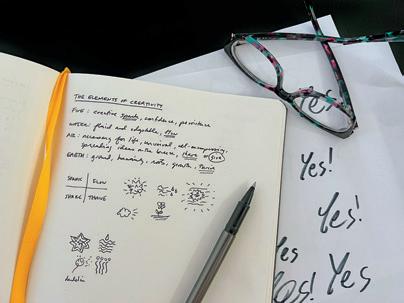 THE ELEMENTS OF CREATIVITY
FIRE: creative spark, confidence, persistence
WATER: fluid and adaptable, flow
AIR: necessary for life, universal, all-encompassing,
spreading ideas on the breeze, share or give
EARTH: ground, humming, roots, growth, thrive
SPARK FLOW
SHARE THRIVE
Yes!
Yes!
Yes!
Yes
Yes!
Yes